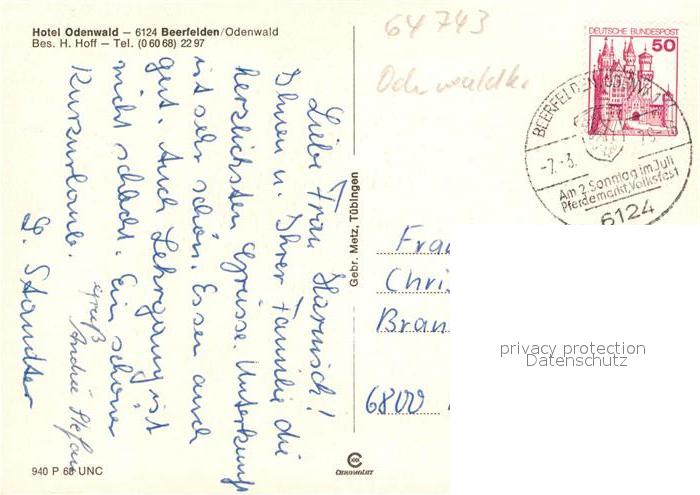 Hotel Odenwald – 6124 Beerfelden/Odenwald
Bes. H. Hoff – Tel. (0 60 68) 22 97
Liebe Frau Harnisch!
Ihnen u. Ihrer Familie die
herzlichsten Grüsse. Unterkunft
ist sehr schön. Essen auch
gut. Auch Lehrgang ist
nicht schlecht. Ein schöner
Kurzurlaub.
Gruß
André Stefan
G. Standter
940 P 68 UNC
Gebr. Metz, Tübingen
64743
DEUTSCHE BUNDESPOST
50
BEERFELDEN
-7.-3.
Am 2. Sonntag im Juli
Pferdemarkt, Volksfest
6124
Frau
Chris
Bran
6800
privacy protection
Datenschutz